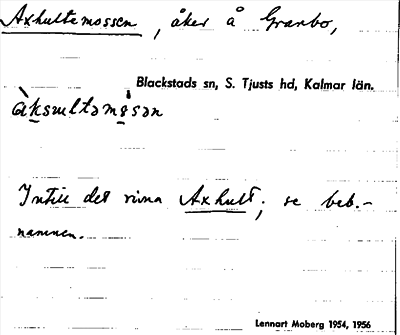 Axhultemossen, åker å Granbo,
Blackstads sn, S. Tjusts hd, Kalmar län.
àksultəmɷsən
Intill det rivna Axhult; se beb.-
namnen.
Lennart Moberg 1954, 1956